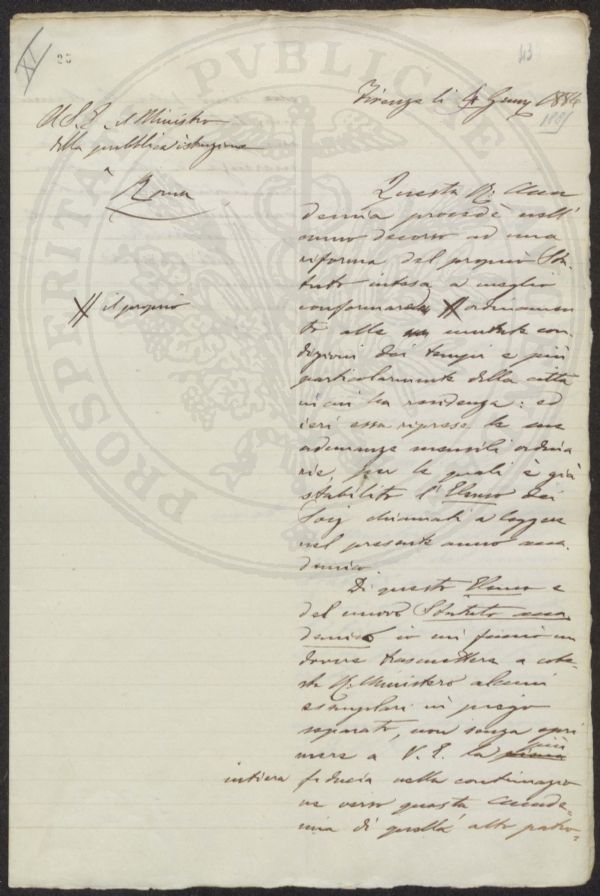 XI
25
43
Firenze li 4 Genn 1884
1885
A S. E. il Ministro
della pubblica istruzione
Roma
Questa R. Acca
demia procedè nell'
anno decorso ad una
riforma del proprio Sta-
tuto intesa a meglio
conformare # ordinamen
# il proprio
to alle mutate con
dizioni dei tempi e più
particolarmente della città
in cui ha residenza: ed
ieri essa riprese le sue
adunanze mensili ordina
rie, per le quali è già
stabilito l'Elenco dei
Socj chiamati a leggere
nel presente anno acca-
demico.
Di questo Elenco e
del nuovo Statuto acca
demico io mi faccio un
dovere trasmettere a cote-
sto R. Ministero alcuni
esemplari in piego
separato, non senza espri
mere a V. E. la più
intiera fiducia nella continuazio
ne verso questa Accade-
mia di quell' alto patro-
PROSPERITATI PUBLICAE